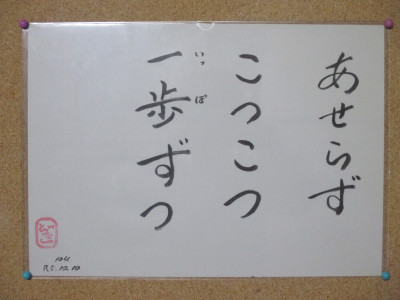 あせらず
こつこつ
一歩ずつ
いっぽ
104
R5.12.10